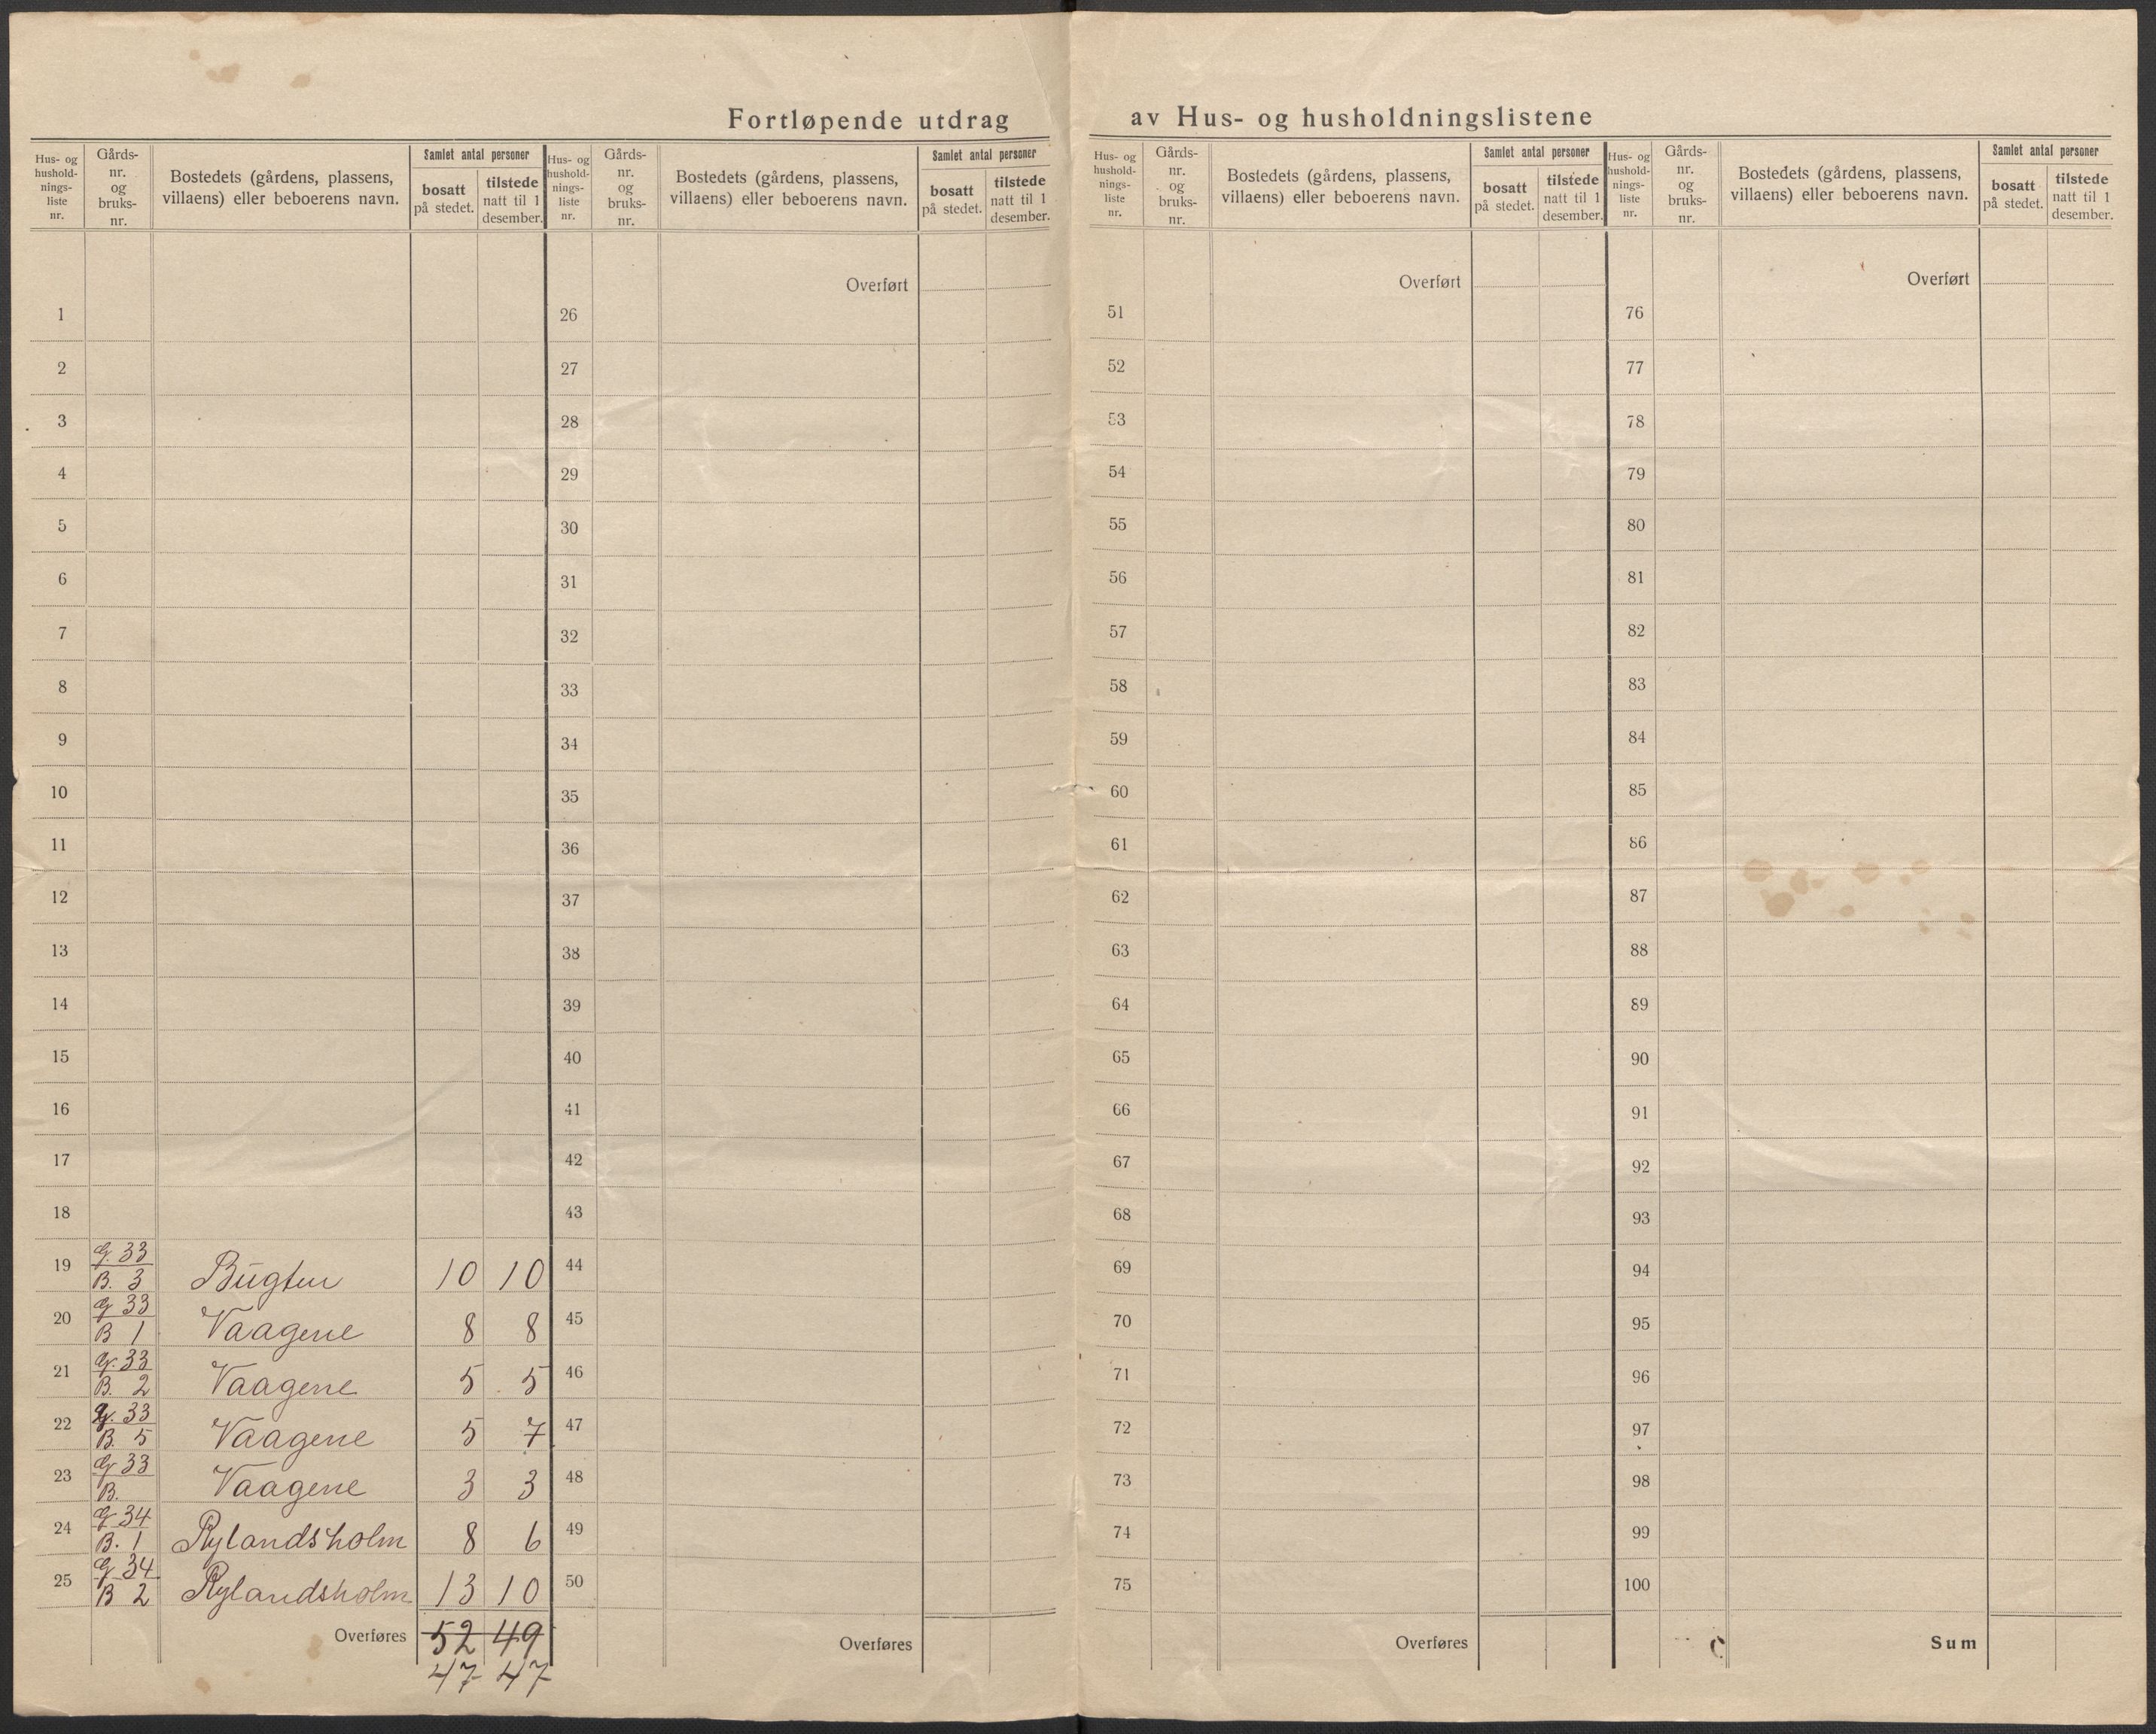 Fortløpende utdrag av Hus- og husholdningslistene
Hus- og hushold-nings-liste nr.
Gårds-nr. og bruks-nr.
Bostedets (gårdens, plassens, villaens) eller beboerens navn.
Samlet antal personer
bosatt på stedet.
tilstede natt til 1 desember.
Hus- og hushold-nings-liste nr.
Gårds-nr. og bruks-nr.
Bostedets (gårdens, plassens, villaens) eller beboerens navn.
Samlet antal personer
bosatt på stedet.
tilstede natt til 1 desember.
Hus- og hushold-nings-liste nr.
Gårds-nr. og bruks-nr.
Bostedets (gårdens, plassens, villaens) eller beboerens navn.
Samlet antal personer
bosatt på stedet.
tilstede natt til 1 desember.
Hus- og hushold-nings-liste nr.
Gårds-nr. og bruks-nr.
Bostedets (gårdens, plassens, villaens) eller beboerens navn.
Samlet antal personer
bosatt på stedet.
tilstede natt til 1 desember.
1
2
3
4
5
6
7
8
9
10
11
12
13
14
15
16
17
18
19 G. 33 B. 3 Bugten 10 10
20 G 33 B 1 Vaagene 8 8
21 G. 33 B. 2 Vaagene 5 5
22 G. 33 B. 5 Vaagene 5 7
23 G 33 B. Vaagene 3 3
24 G 34 B. 1 Rylandsholm 8 6
25 G 34 B 2 Rylandsholm 13 10
Overføres 52 49
47 47
Overført
26
27
28
29
30
31
32
33
34
35
36
37
38
39
40
41
42
43
44
45
46
47
48
49
50
Overføres
Overført
51
52
53
54
55
56
57
58
59
60
61
62
63
64
65
66
67
68
69
70
71
72
73
74
75
Overføres
Overført
76
77
78
79
80
81
82
83
84
85
86
87
88
89
90
91
92
93
94
95
96
97
98
99
100
Sum